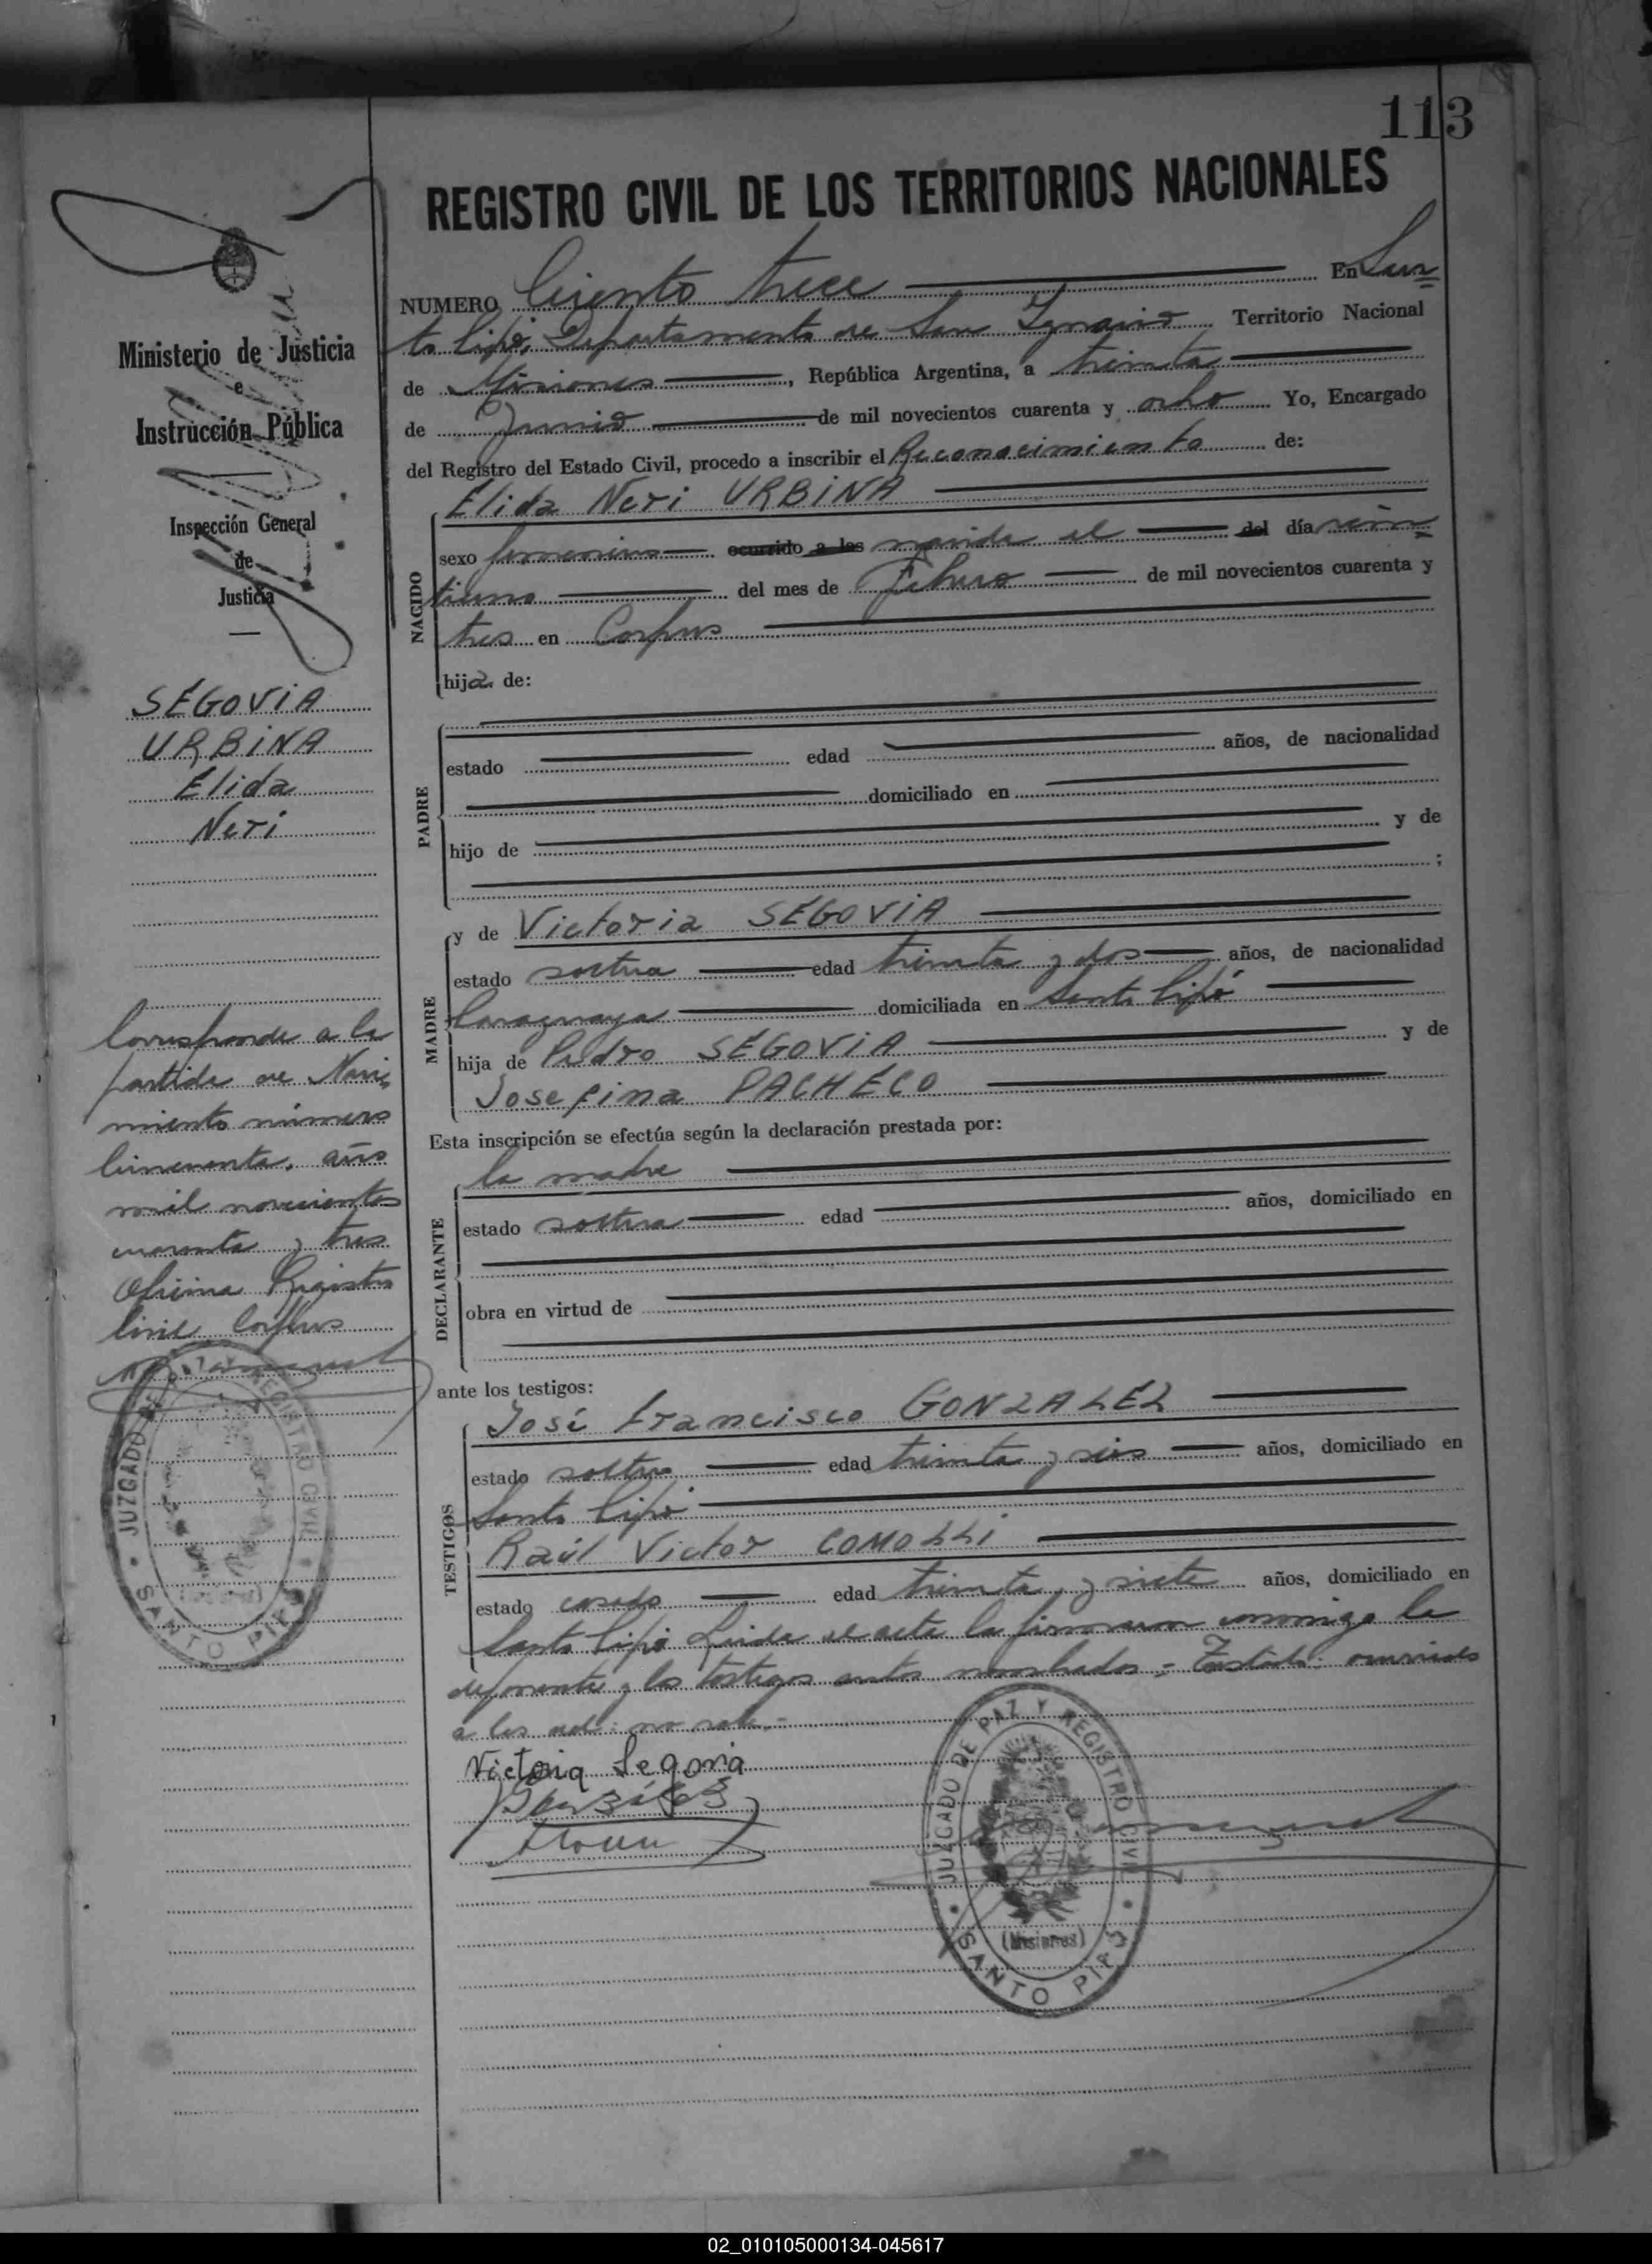 113
REGISTRO CIVIL DE LOS TERRITORIOS NACIONALES
NUMERO Ciento trece En San
to Pipó, Departamento de San Ignacio Territorio Nacional
de Misiones, República Argentina, a treinta
de Junio de mil novecientos cuarenta y ocho Yo, Encargado
del Registro del Estado Civil, procedo a inscribir el Reconocimiento de:
Elida Neri URBINA
NACIDO
sexo femenino ocurrido a las nacida el del día vein
tiuno del mes de Febrero de mil novecientos cuarenta y
tres en Corpus
hija de:
PADRE
estado edad años, de nacionalidad
domiciliado en
hijo de y de
;
MADRE
y de Victoria SEGOVIA
estado soltera edad treinta y dos años, de nacionalidad
Paraguaya domiciliada en Santo Pipó
hija de Pedro SEGOVIA y de
Josefina PACHECO
Esta inscripción se efectúa según la declaración prestada por:
DECLARANTE
la madre
estado soltera edad años, domiciliado en
obra en virtud de
ante los testigos:
TESTIGOS
José Francisco GONZALEZ
estado soltero edad treinta y seis años, domiciliado en
Santo Pipó
Raúl Victor COMOLLI
estado casado edad treinta y siete años, domiciliado en
Santo Pipó Leida el acta la firmaron conmigo la
deponente y los testigos antes nombrados = Testado: ocurrido
a las del: no vale.-
Victoria Segovia
JUZGADO DE PAZ Y REGISTRO CIVIL
(Misiones)
SANTO PIPÓ
Ministerio de Justicia
e
Instrucción Pública
Inspección General
de
Justicia
SEGOVIA
URBINA
Elida
Neri
Corresponde a la
partida de Naci
miento número
Cincuenta, año
mil novecientos
cuarenta y tres
Oficina Registro
Civil Corpus
JUZGADO DE PAZ Y REGISTRO CIVIL
SANTO PIPÓ
02_010105000134-045617